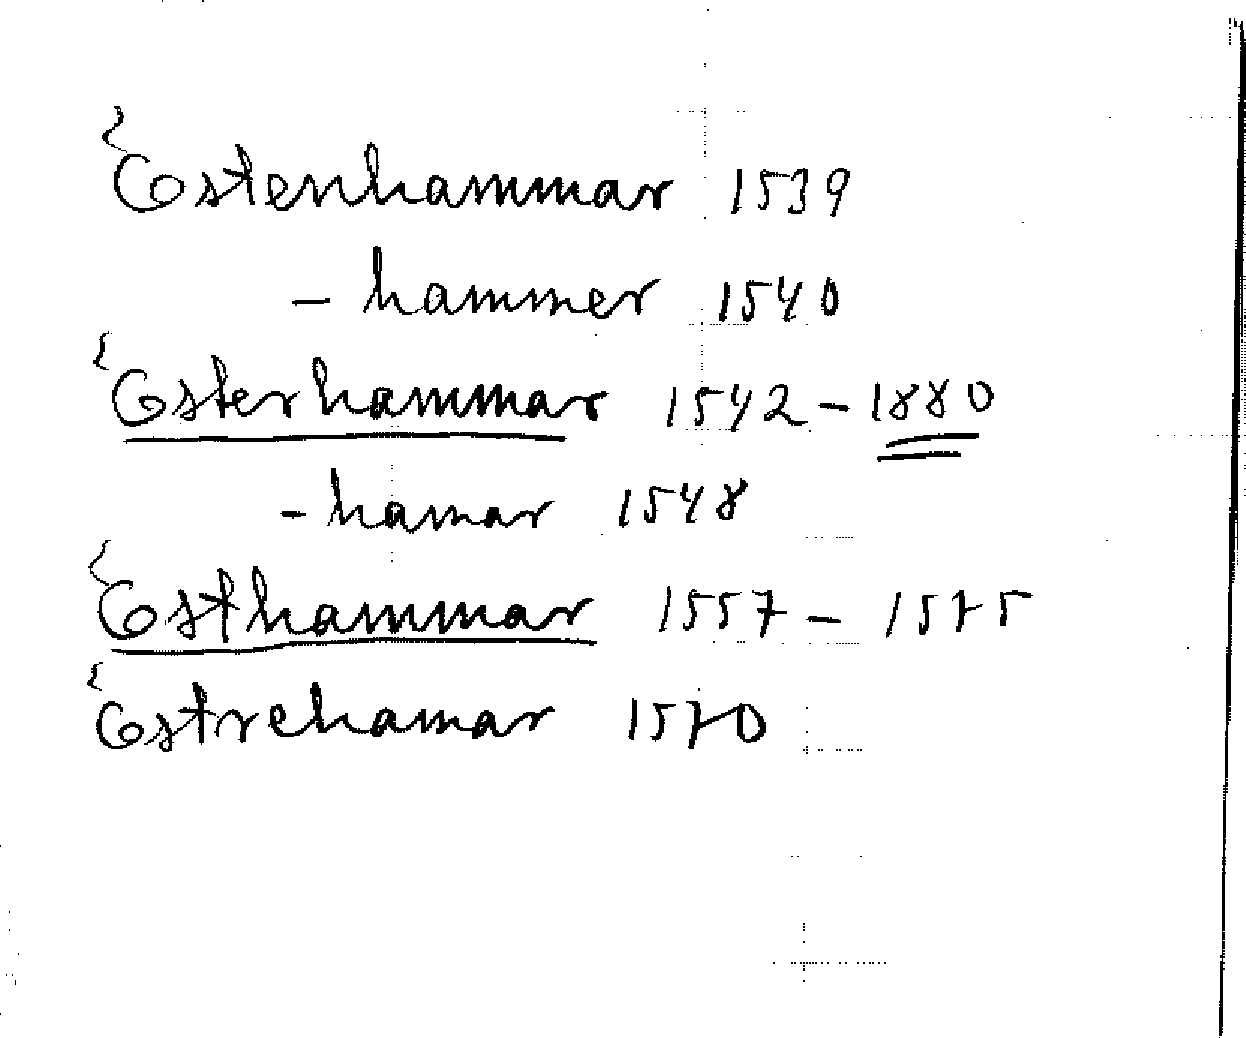 Östenhammar 1539
- hammer 1540
Österhammar 1542 - 1880
- hamar 1548
Östhammar 1557 - 1575
Östrehamar 1570